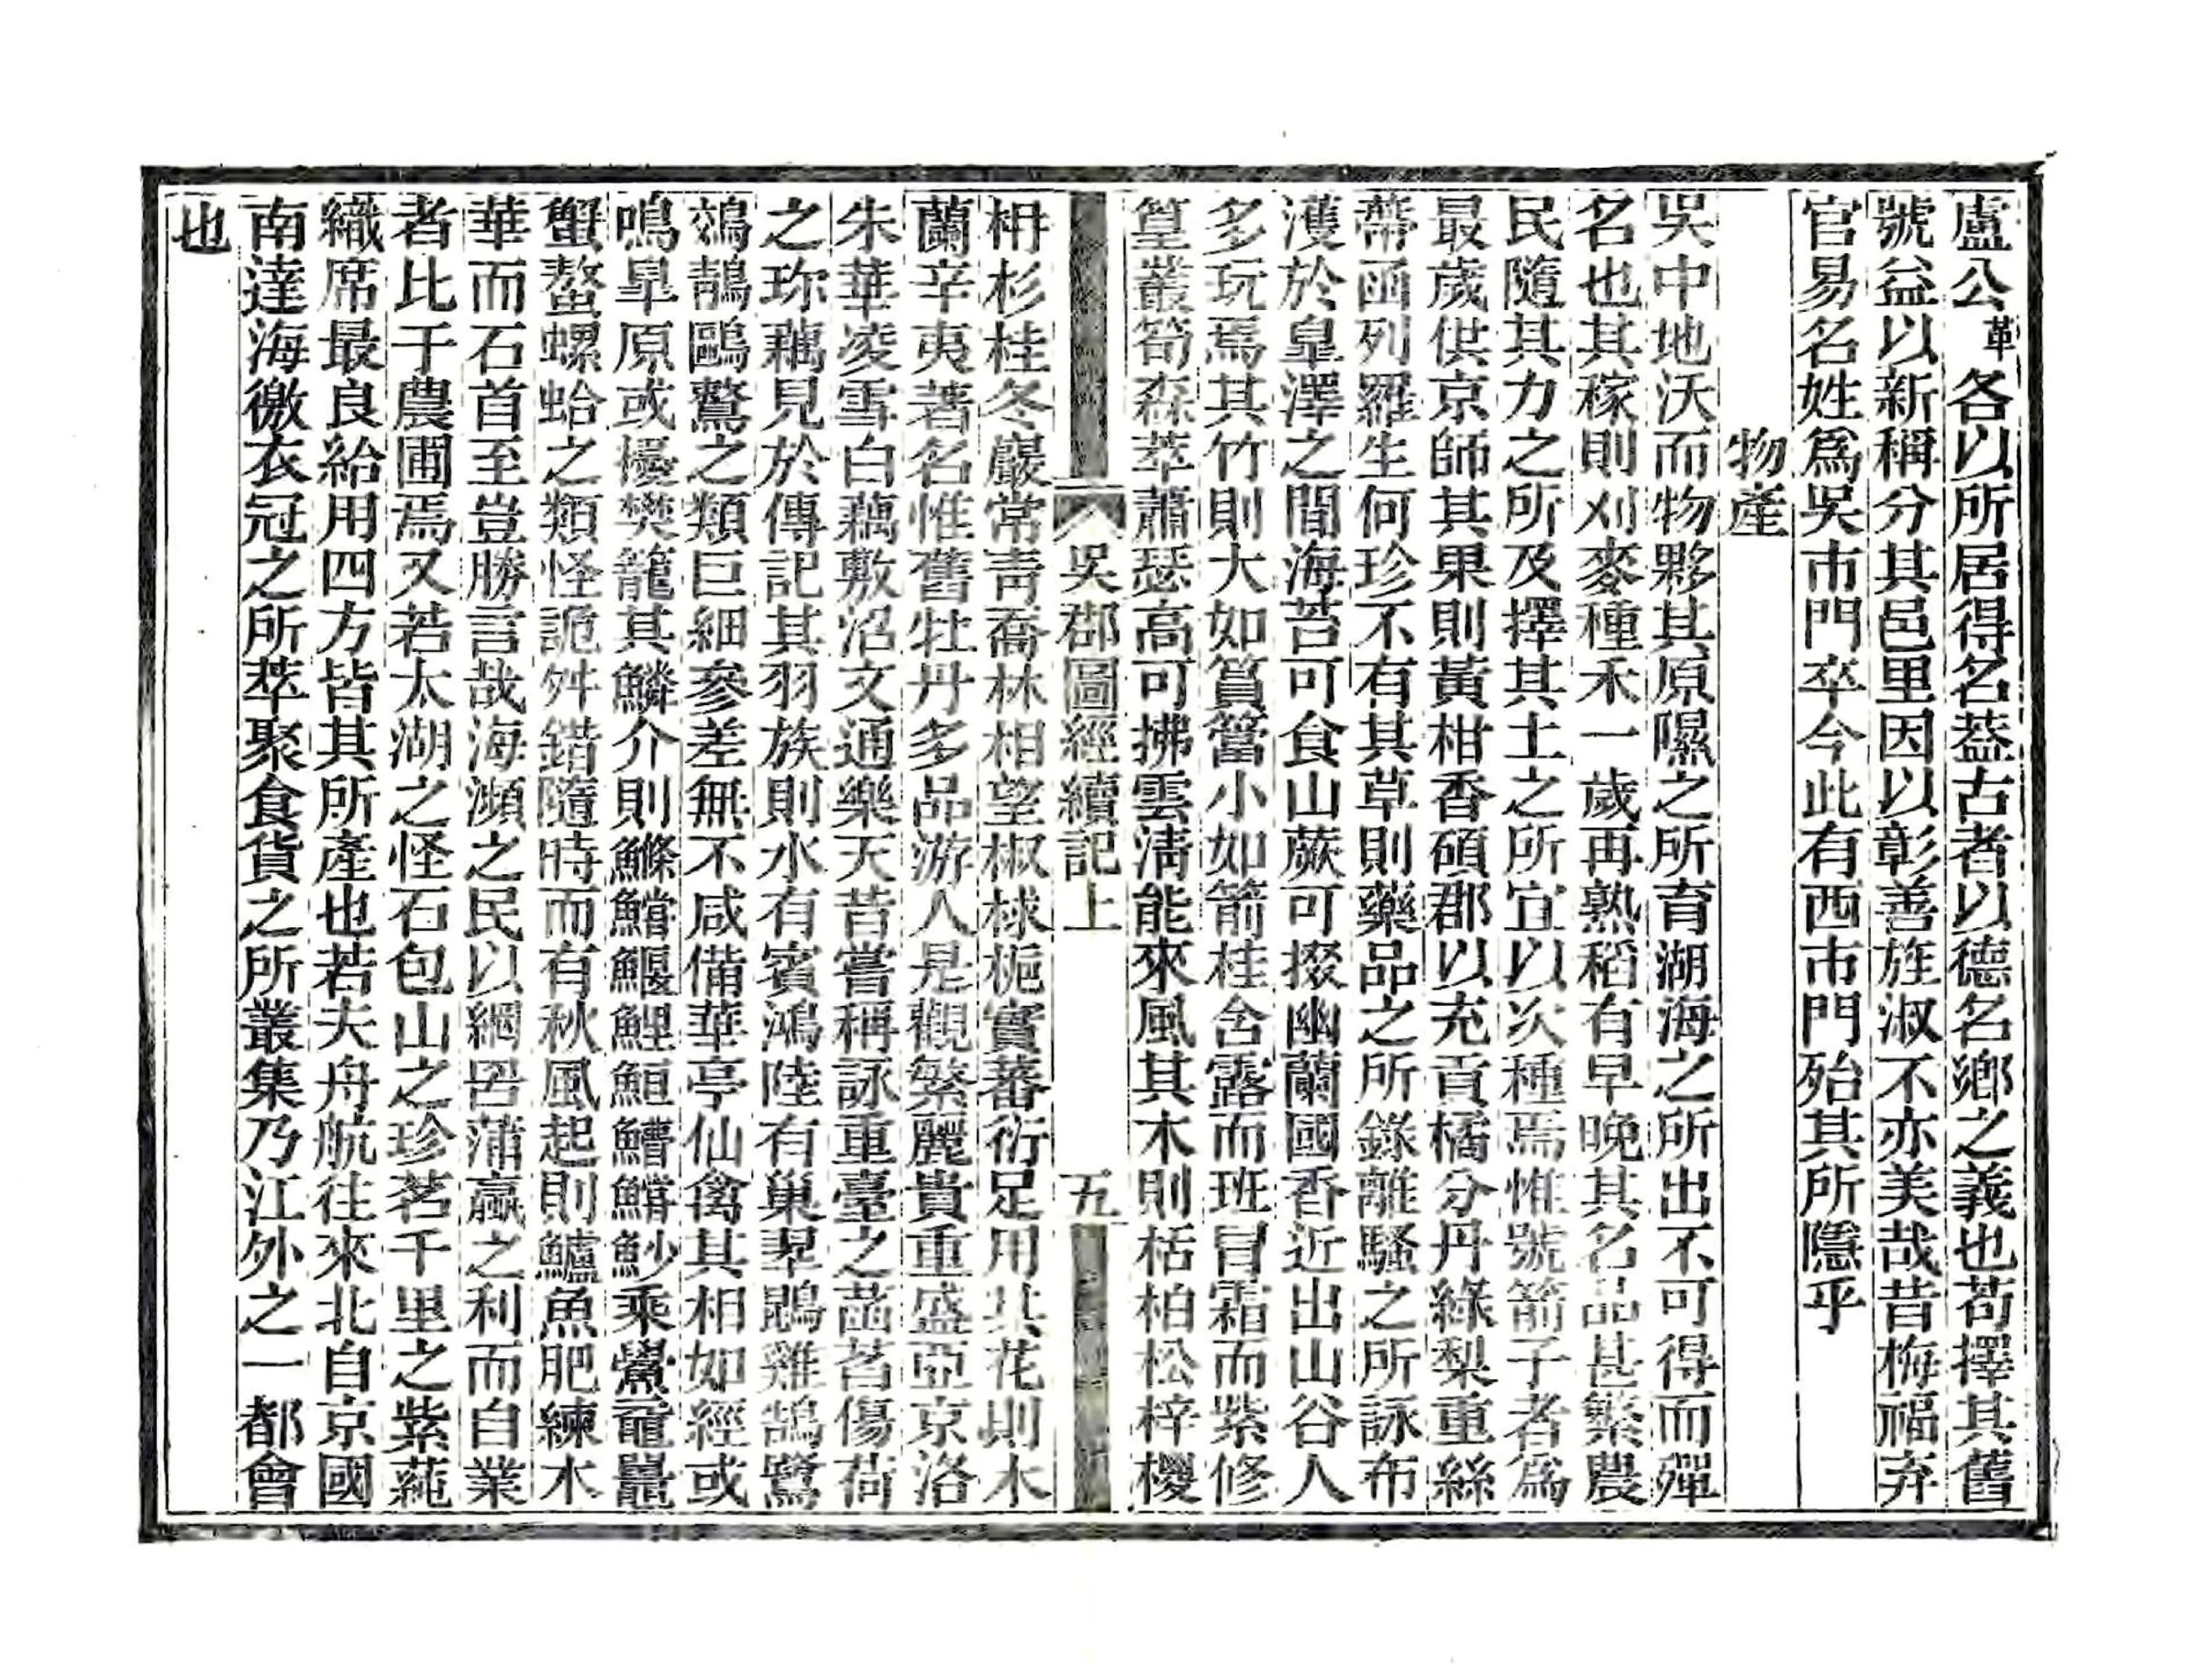 盧公革各以所居得名葢古者以德名鄉之義也苟擇其舊
號益以新稱分其邑里因以彰善旌淑不亦美哉昔梅福弃
官易名姓爲吳市門卒今此有西市門殆其所隱乎
物產
吳中地沃而物夥其原隰之所育湖海之所出不可得而殫
名也其稼則刈麥種禾一歲再熟稻有早晚其名品甚繁農
民隨其力之所及擇其土之所宜以次種焉惟號箭子者爲
最歲供京師其果則黃柑香碩郡以充貢橘分丹綠梨重絲
蔕函列羅生何珍不有其草則藥品之所錄離騷之所詠布
濩於皐澤之間海苔可食山蕨可掇幽蘭國香近出山谷人
多玩焉其竹則大如篔簹小如箭桂含露而班冒霜而紫修
篁叢筍森萃蕭瑟高可拂雲淸能來風其木則栝柏松梓椶
吳郡圖經續記上
五
枏杉桂冬巖常靑喬林相望椒梂梔實蕃衍足用其花則木
蘭辛夷著名惟舊牡丹多品游人是觀繁麗貴重盛亞京洛
朱華凌雪白藕敷沼文通樂天昔嘗稱詠重臺之菡萏傷荷
之珎藕見於傳記其羽族則水有賓鴻陸有巢翠鵾雞鵠鷺
鵁鶄鷗鶩之類巨細參差無不咸備華亭仙禽其相如經或
鳴皐原或擾樊籠其鱗介則鰷鱨鰋鯉䱎鰽䱜魦乘鱟黿鼉
蟹螯螺蛤之類怪詭舛錯隨時而有秋風起則鱸魚肥練木
華而石首至豈勝言哉海瀕之民以網罟蒲蠃之利而自業
者比于農圃焉又若太湖之怪石包山之珍茗千里之紫蓴
織席最良給用四方皆其所產也若夫舟航往來北自京國
南達海徼衣冠之所萃聚食貨之所叢集乃江外之一都會
也